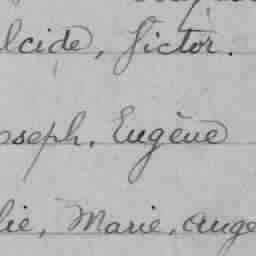 lcide, Victor.
oseph. Eugène
lie, Marie, ange